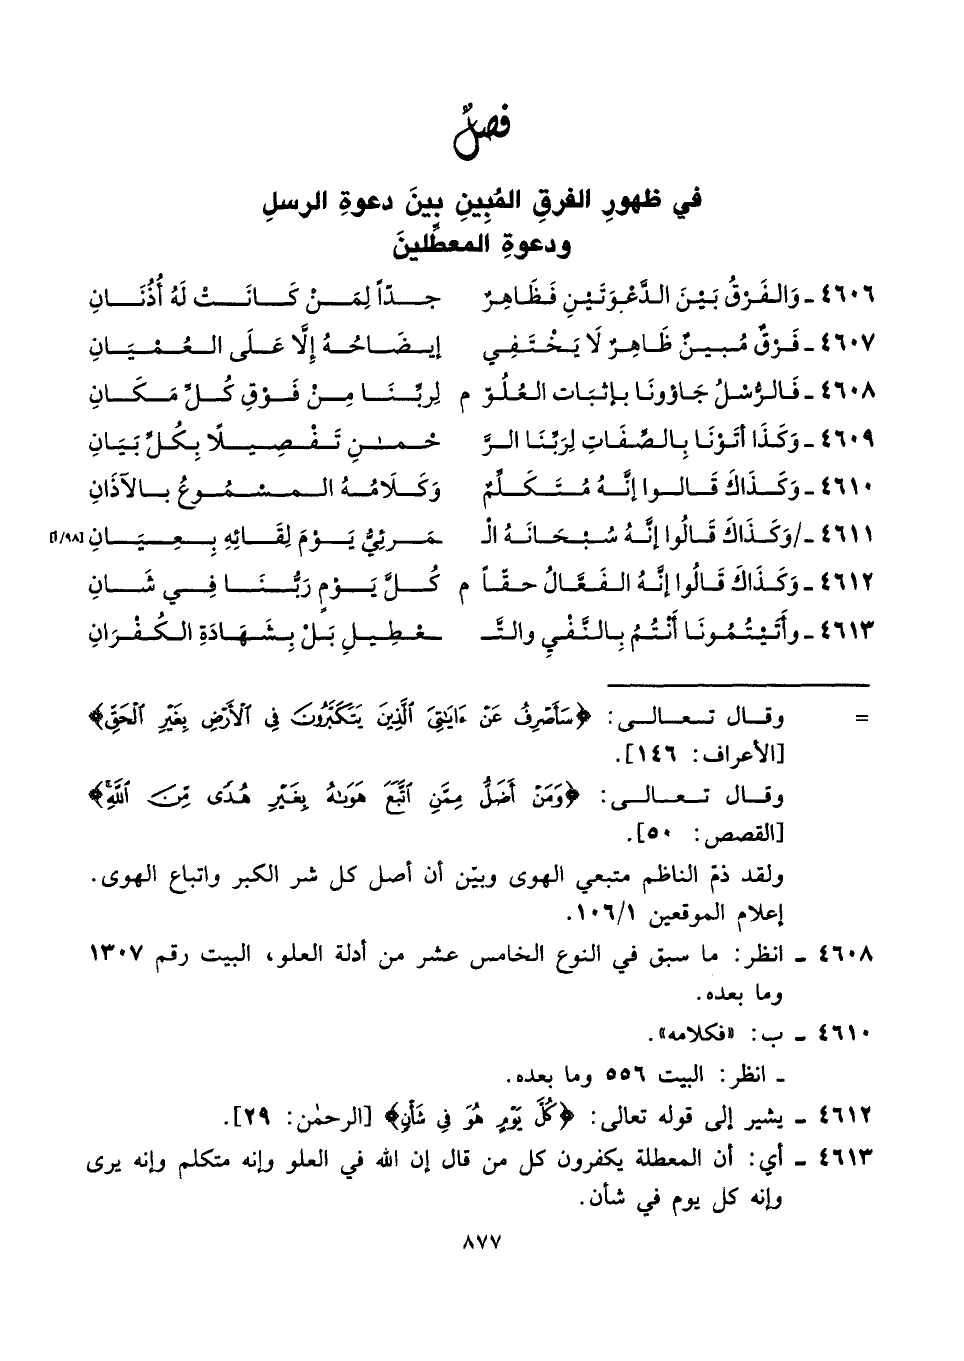 فصلٌ
في ظهورِ الفرقِ المُبِينِ بينَ دعوةِ الرسلِ
ودعوةِ المعطِّلينَ
٤٦٠٦ ـ وَالفَرْقُ بَيْنَ الدَّعْوَتَيْنِ فَظَاهِرٌ جِدّاً لِمَنْ كَانَتْ لَهُ أُذُنَانِ
٤٦٠٧ ـ فَرْقٌ مُبِينٌ ظَاهِرٌ لَا يَخْتَفِي إيضَاحُهُ إِلَّا عَلَى العُمْيَانِ
٤٦٠٨ ـ فَالرُّسْلُ جَاؤونَا بإثبَاتِ العُلُوّ م لِربِّنَا مِنْ فَوْقِ كُلِّ مَكَانِ
٤٦٠٩ ـ وَكَذَا أتَوْنَا بِالصِّفَاتِ لِرَبِّنَا الرَّ حْمـٰنِ تَفْصِيلًا بِكُلِّ بَيَانِ
٤٦١٠ ـ وَكَذَاكَ قَالوا إنَّهُ مُتَكَلِّمٌ وَكَلَامُهُ المسْمُوعُ بالآذَانِ
٤٦١١ ـ /وَكَذَاكَ قَالُوا إنَّهُ سُبْحَانَهُ الْـ ـمَرئيُّ يَوْمَ لِقَائِهِ بِعِيَانِ [٩٨/أ]
٤٦١٢ ـ وَكَذَاكَ قَالُوا إنَّهُ الفَعَّالُ حقّاً م كُلَّ يَوْمٍ رَبُّنَا فِي شَانِ
٤٦١٣ ـ وأَتَيْتُمُونَا أَنْتُمُ بِالنَّفْيِ والتَّـ ـعْطِيلِ بَلْ بِشَهَادَةِ الكُفْرَانِ
= وقال تعالى: ﴿سَأَصْرِفُ عَنْ ءَايَٰتِيَ ٱلَّذِينَ يَتَكَبَّرُونَ فِي ٱلْأَرْضِ بِغَيْرِ ٱلْحَقِّ﴾
[الأعراف: ١٤٦].
وقال تعالى: ﴿وَمَنْ أَضَلُّ مِمَّنِ ٱتَّبَعَ هَوَىٰهُ بِغَيْرِ هُدًى مِّنَ ٱللَّهِ﴾
[القصص: ٥٠].
ولقد ذمّ الناظم متبعي الهوى وبيّن أن أصل كل شر الكبر واتباع الهوى.
إعلام الموقعين ١٠٦/١.
٤٦٠٨ ـ انظر: ما سبق في النوع الخامس عشر من أدلة العلو، البيت رقم ١٣٠٧
وما بعده.
٤٦١٠ ـ ب: «فكلامه».
ـ انظر: البيت ٥٥٦ وما بعده.
٤٦١٢ ـ يشير إلى قوله تعالى: ﴿كُلَّ يَوْمٍ هُوَ فِي شَأْنٍ﴾ [الرحمٰن: ٢٩].
٤٦١٣ ـ أي: أن المعطلة يكفرون كل من قال إن الله في العلو وإنه متكلم وإنه يرى
وإنه كل يوم في شأن.
٨٧٧